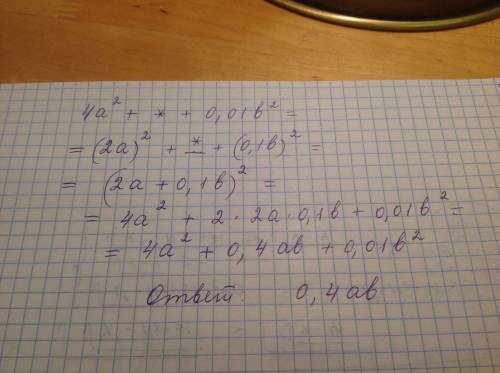 4a² + * + 0,01b² =
= (2a)² + * + (0,1b)² =
= (2a + 0,1b)² =
= 4a² + 2 · 2a · 0,1b + 0,01b² =
= 4a² + 0,4ab + 0,01b²
Ответ: 0,4ab